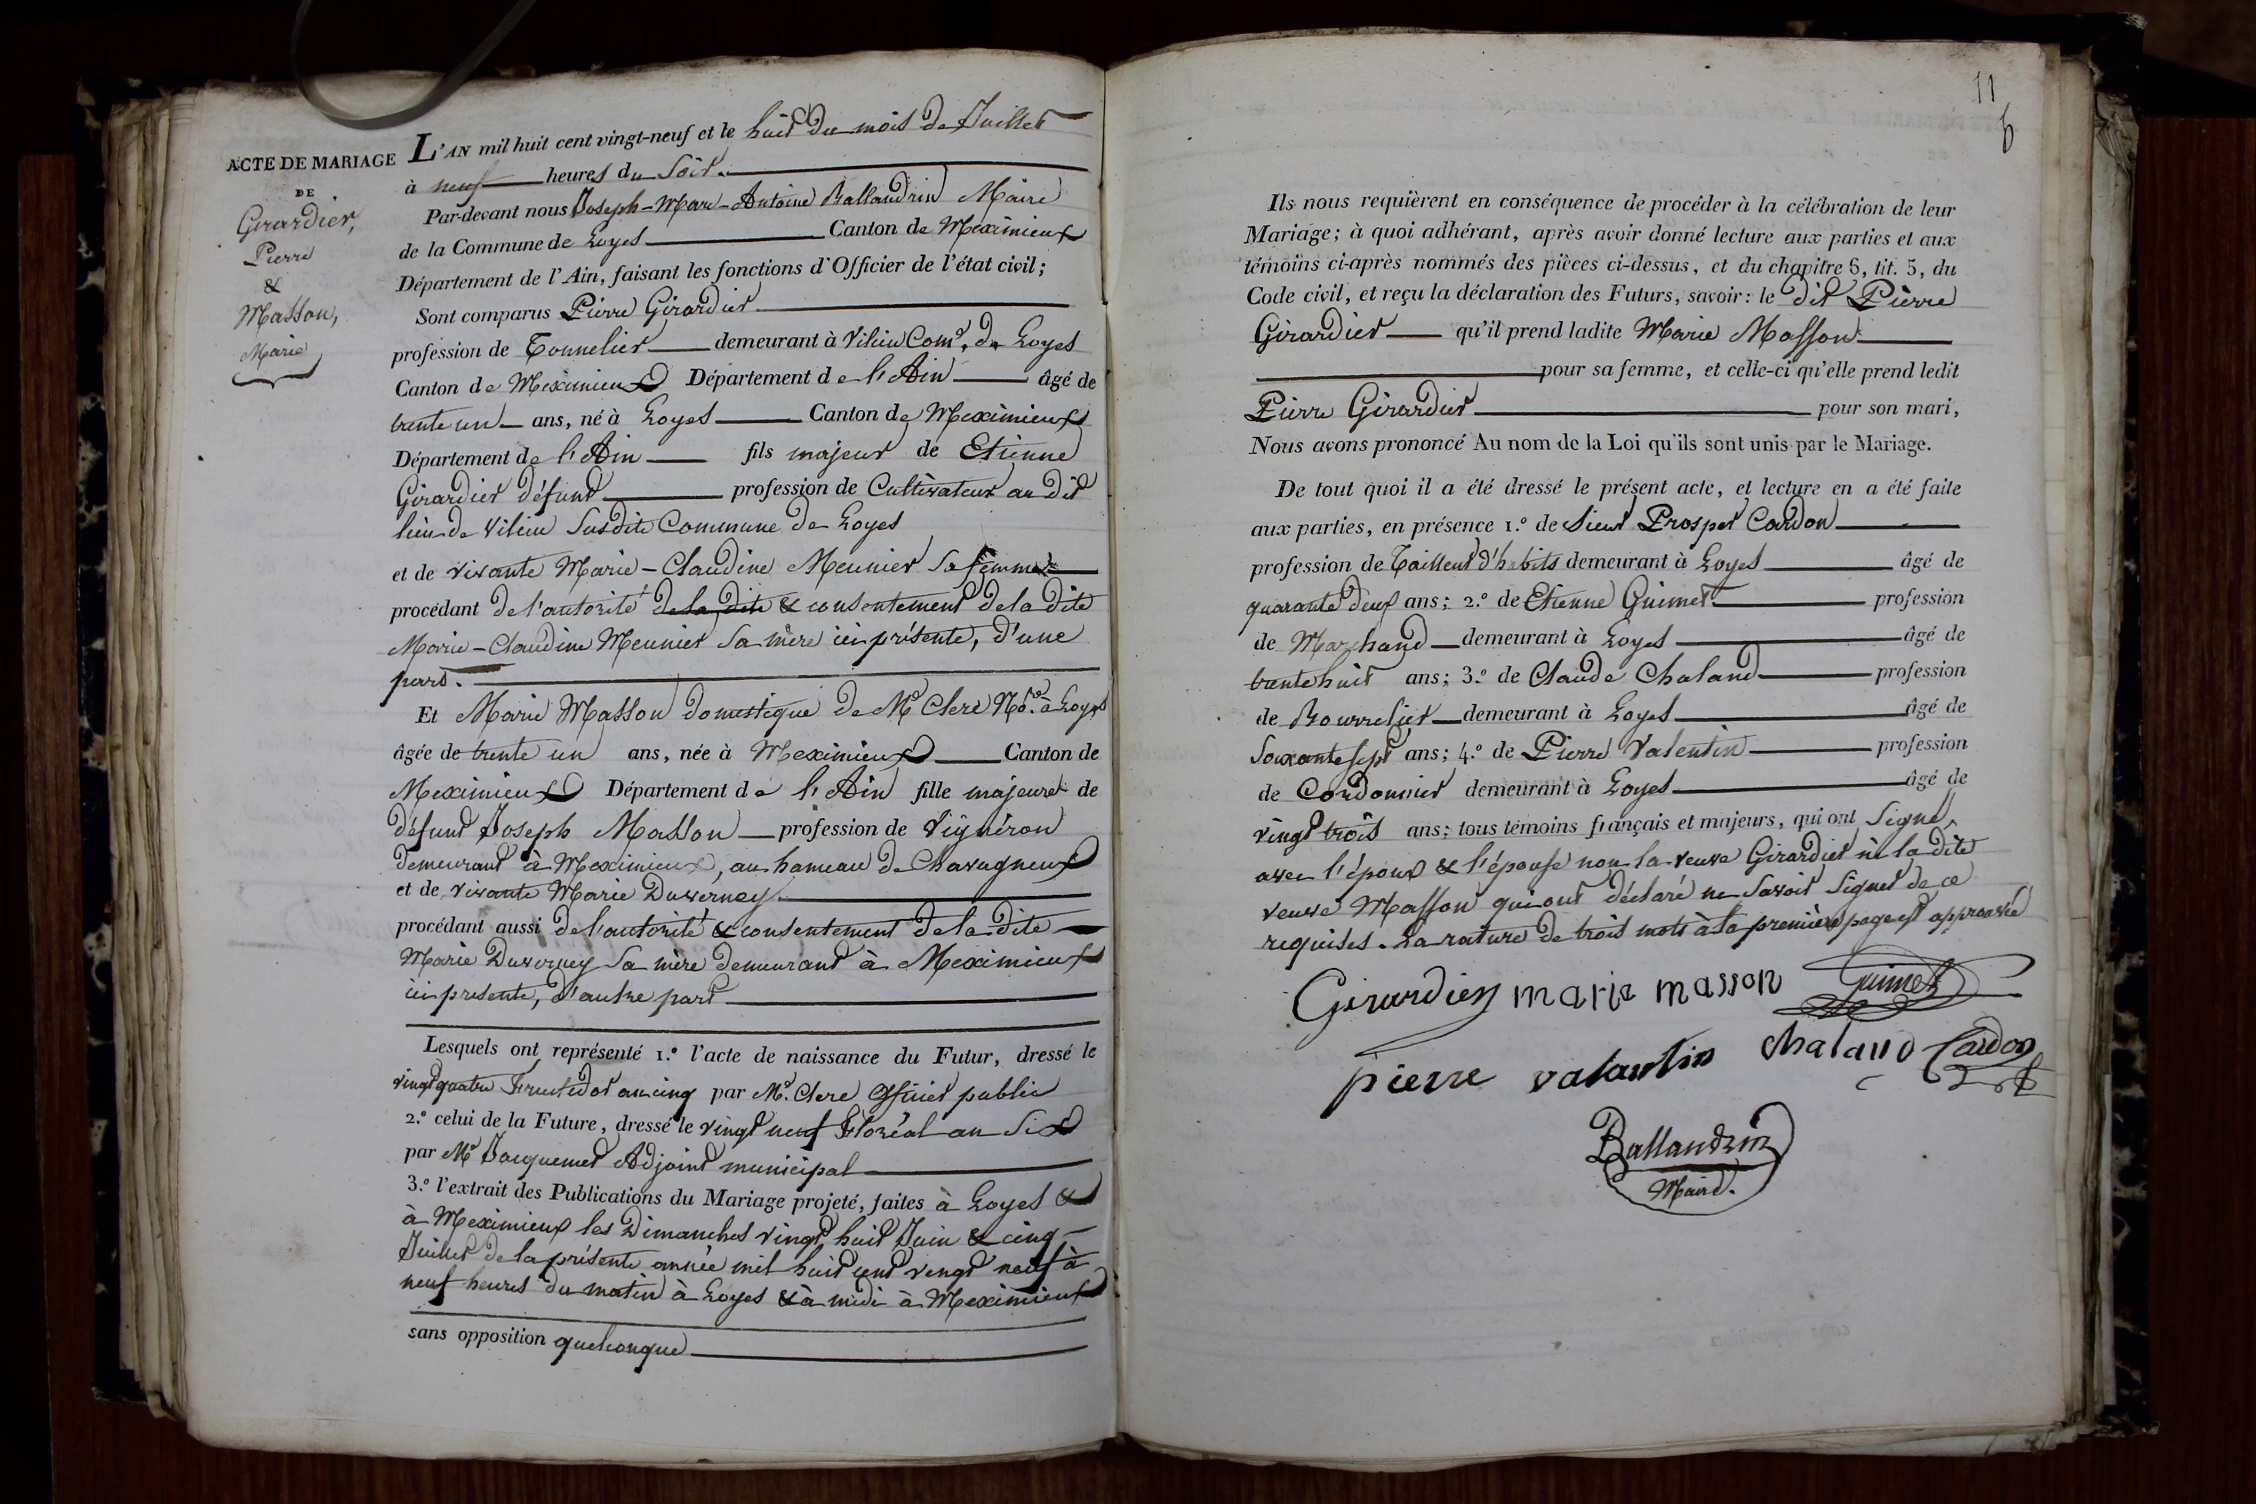 ACTE DE MARIAGE
DE
Girardier,
Pierre
&
Masson,
Marie
L'AN mil huit cent vingt-neuf et le huit du mois de Juillet
à neuf heures du soir.
Par-devant nous Joseph-Marc-Antoine Ballandrin Maire
de la Commune de Loyes Canton de Meximieux
Département de l'Ain, faisant les fonctions d'Officier de l'état civil;
Sont comparus Pierre Girardier
profession de Tonnelier demeurant à Vilieu Com.e de Loyes
Canton de Meximieux Département de l'Ain âgé de
trente un ans, né à Loyes Canton de Meximieux
Département de l'Ain fils majeur de Etienne
Girardier défunt profession de Cultivateur au dit
lieu de Vilieu susdite Commune de Loyes
et de vivante Marie-Claudine Meunier sa femme
procédant de l'autorité de la dite & consentement de la dite
Marie-Claudine Meunier sa mère ici présente, d'une
part.
Et Marie Masson domestique de Mr Clerc No.re à Loyes
âgée de trente un ans, née à Meximieux Canton de
Meximieux Département de l'Ain fille majeure de
défunt Joseph Masson profession de Vigneron
demeurant à Meximieux, au hameau de Chavagneux
et de vivante Marie Duverney
procédant aussi de l'autorité & consentement de la dite
Marie Duverney sa mère demeurant à Meximieux
ici présente, d'autre part
Lesquels ont représenté 1.º l'acte de naissance du Futur, dressé le
vingt quatre Fructidor an cinq par Mr. Clerc Officier public
2.º celui de la Future, dressé le vingt neuf Floréal an Six
par Mr Jacquemet Adjoint municipal
3.º l'extrait des Publications du Mariage projeté, faites à Loyes &
à Meximieux les Dimanches vingt huit Juin & cinq
Juillet de la présente année mil huit cent vingt neuf à
neuf heures du matin à Loyes & à midi à Meximieux
sans opposition quelconque
11
6
Ils nous requièrent en conséquence de procéder à la célébration de leur
Mariage; à quoi adhérant, après avoir donné lecture aux parties et aux
témoins ci-après nommés des pièces ci-dessus, et du chapitre 6, tit. 5, du
Code civil, et reçu la déclaration des Futurs, savoir: le dit Pierre
Girardier qu'il prend ladite Marie Masson
pour sa femme, et celle-ci qu'elle prend ledit
Pierre Girardier pour son mari,
Nous avons prononcé Au nom de la Loi qu'ils sont unis par le Mariage.
De tout quoi il a été dressé le présent acte, et lecture en a été faite
aux parties, en présence 1.º de Sieur Prosper Cardon
profession de Tailleur d'habits demeurant à Loyes âgé de
quarante deux ans; 2.º de Etienne Guimet profession
de Marchand demeurant à Loyes âgé de
trente huit ans; 3.º de Claude Chaland profession
de Bourrelier demeurant à Loyes âgé de
soixante sept ans; 4.º de Pierre Valentin profession
de Cordonnier demeurant à Loyes âgé de
vingt trois ans; tous témoins français et majeurs, qui ont signé,
avec l'époux & l'épouse non la veuve Girardier ni la dite
veuve Masson qui ont déclaré ne savoir signer de ce
requises. La rature de trois mots à la première page est approuvée
Girardier marie masson Guimet
pierre valantin chaland Cardon
Ballandrin
Maire.